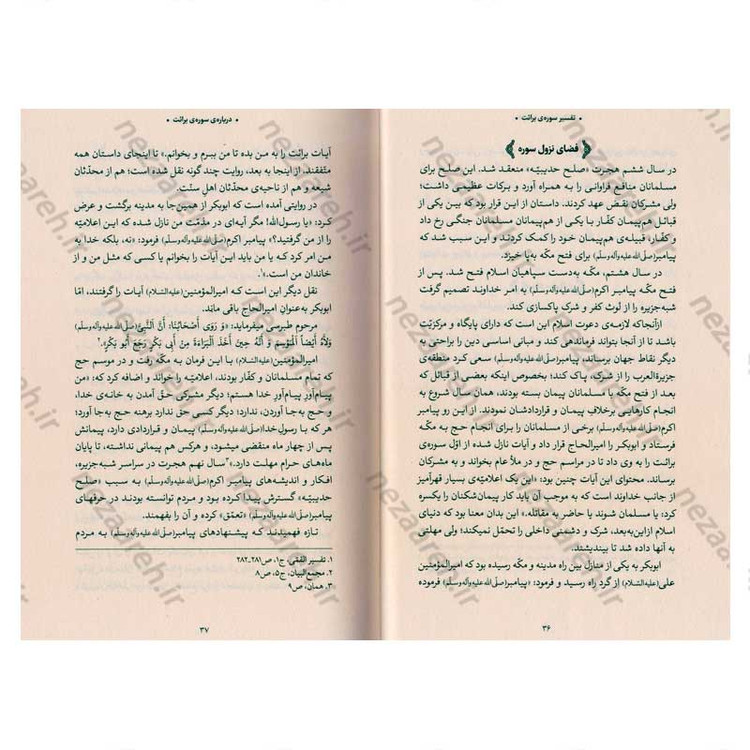 • تفسیر سوره‌ی برائت •
فضای نزول سوره
در سال ششم هجرت «صلح حدیبیّه» منعقد شد. این صلح برای
مسلمانان منافع فراوانی را به همراه آورد و برکات عظیمی داشت؛
ولی مشرکان نقض عهد کردند. داستان از این قرار بود که بین یکی از
قبائل هم‌پیمان کفّار با یکی از هم‌پیمانان مسلمانان جنگی رخ داد
و کفّار، قبیله‌ی هم‌پیمان خود را کمک کردند و این سبب شد که
پیامبر(صلّی‌الله‌علیه‌وآله‌وسلّم) برای فتح مکّه به‌پا خیزد.
در سال هشتم، مکّه به‌دست سپاهیان اسلام فتح شد. پس از
فتح مکّه پیامبر اکرم(صلّی‌الله‌علیه‌وآله‌وسلّم) به امر خداوند تصمیم گرفت
شبه‌جزیره را از لوث کفر و شرک پاکسازی کند.
ازآنجاکه لازمه‌ی دعوت اسلام این است که دارای پایگاه و مرکزیّت
باشد تا از آنجا بتواند فرماندهی کند و مبانی اساسی دین را براحتی به
دیگر نقاط جهان برساند، پیامبر(صلّی‌الله‌علیه‌وآله‌وسلّم) سعی کرد منطقه‌ی
جزیرةالعرب را از شرک، پاک کند؛ بخصوص اینکه بعضی از قبائل که
بعد از فتح مکّه با مسلمانان پیمان بسته بودند، همان سال شروع به
انجام کارهایی برخلاف پیمان و قراردادشان نمودند. از این رو پیامبر
اکرم(صلّی‌الله‌علیه‌وآله‌وسلّم) برخی از مسلمانان را برای انجام حج به مکّه
فرستاد و ابوبکر را امیرالحاج قرار داد و آیات نازل شده از اوّل سوره‌ی
برائت را به وی داد تا در مراسم حج و در ملأ عام بخواند و به مشرکان
برساند. محتوای این آیات چنین بود: «این یک اعلامیّه‌ی بسیار قهرآمیز
از جانب خداوند است که به موجب آن باید کار پیمان‌شکنان را یکسره
کرد؛ یا مسلمان شوند یا حاضر به مقاتله.» این بدان معنا بود که دنیای
اسلام ازاین‌به‌بعد، شرک و دشمنی داخلی را تحمّل نمیکند؛ ولی مهلتی
به آنها داده شد تا بیندیشند.
ابوبکر به یکی از منازل بین راه مدینه و مکّه رسیده بود که امیرالمؤمنین
علی(علیه‌السّلام) از گرد راه رسید و فرمود: «پیامبر(صلّی‌الله‌علیه‌وآله‌وسلّم) فرموده
۳۶
• درباره‌ی سوره‌ی برائت •
آیات برائت را به من بده تا من ببرم و بخوانم.» تا اینجای داستان همه
متّفقند. از اینجا به بعد، روایت چند گونه نقل شده است؛ هم از محدّثان
شیعه و هم از ناحیه‌ی محدّثان اهل سنّت.
در روایتی آمده است که ابوبکر از همین‌جا به مدینه برگشت و عرض
کرد: «یا رسول‌الله! مگر آیه‌ای در مذمّت من نازل شده که این اعلامیّه
را از من گرفتید؟» پیامبر اکرم(صلّی‌الله‌علیه‌وآله‌وسلّم) فرمود: «نه، بلکه خدا به
من امر کرد که یا من باید این آیات را بخوانم یا کسی که مثل من و از
خاندان من است.»۱
نقل دیگر این است که امیرالمؤمنین(علیه‌السّلام) آیات را گرفتند، امّا
ابوبکر به‌عنوان امیرالحاج باقی ماند.
مرحوم طبرسی میفرماید: «وَ رَوَی أَصْحَابُنَا: أَنَّ النَّبِیَّ(صلّی‌الله‌علیه‌وآله‌وسلّم)
وَلَّاهُ أَیْضاً الْمَوْسِمَ وَ أَنَّهُ حِینَ أَخَذَ الْبَرَاءَةَ مِنْ أَبِی بَکْرٍ رَجَعَ أَبُو بَکْرٍ».۲
امیرالمؤمنین(علیه‌السّلام) با این فرمان به مکّه رفت و در موسم حج
که تمام مسلمانان و کفّار بودند، اعلامیّه را خواند و اضافه کرد که: «من
پیام‌آورِ پیام‌آور خدا هستم؛ دیگر مشرکی حقّ آمدن به خانه‌ی خدا،
و حج به‌جا آوردن، ندارد؛ دیگر کسی حق ندارد برهنه حج به‌جا آورد؛
هر که با رسول خدا(صلّی‌الله‌علیه‌وآله‌وسلّم) پیمان و قراردادی دارد، پیمانش
پس از چهار ماه منقضی میشود، و هرکس هم پیمانی نداشته، تا پایان
ماه‌های حرام مهلت دارد.»۳ سال نهم هجرت در سراسر شبه‌جزیره،
افکار و اندیشه‌های پیامبر اکرم(صلّی‌الله‌علیه‌وآله‌وسلّم) به سبب «صلح
حدیبیّه» گسترش پیدا کرده بود و مردم توانسته بودند در حرفهای
پیامبر(صلّی‌الله‌علیه‌وآله‌وسلّم) «تعمّق» کرده و آن را بفهمند.
تازه فهمیدند که پیشنهادهای پیامبر(صلّی‌الله‌علیه‌وآله‌وسلّم) به مردم
۱. تفسیر القمّی، ج۱، ص۲۸۱ـ۲۸۲
۲. مجمع‌البیان، ج۵، ص۸
۳. همان، ص۹
۳۷
nezaareh.ir